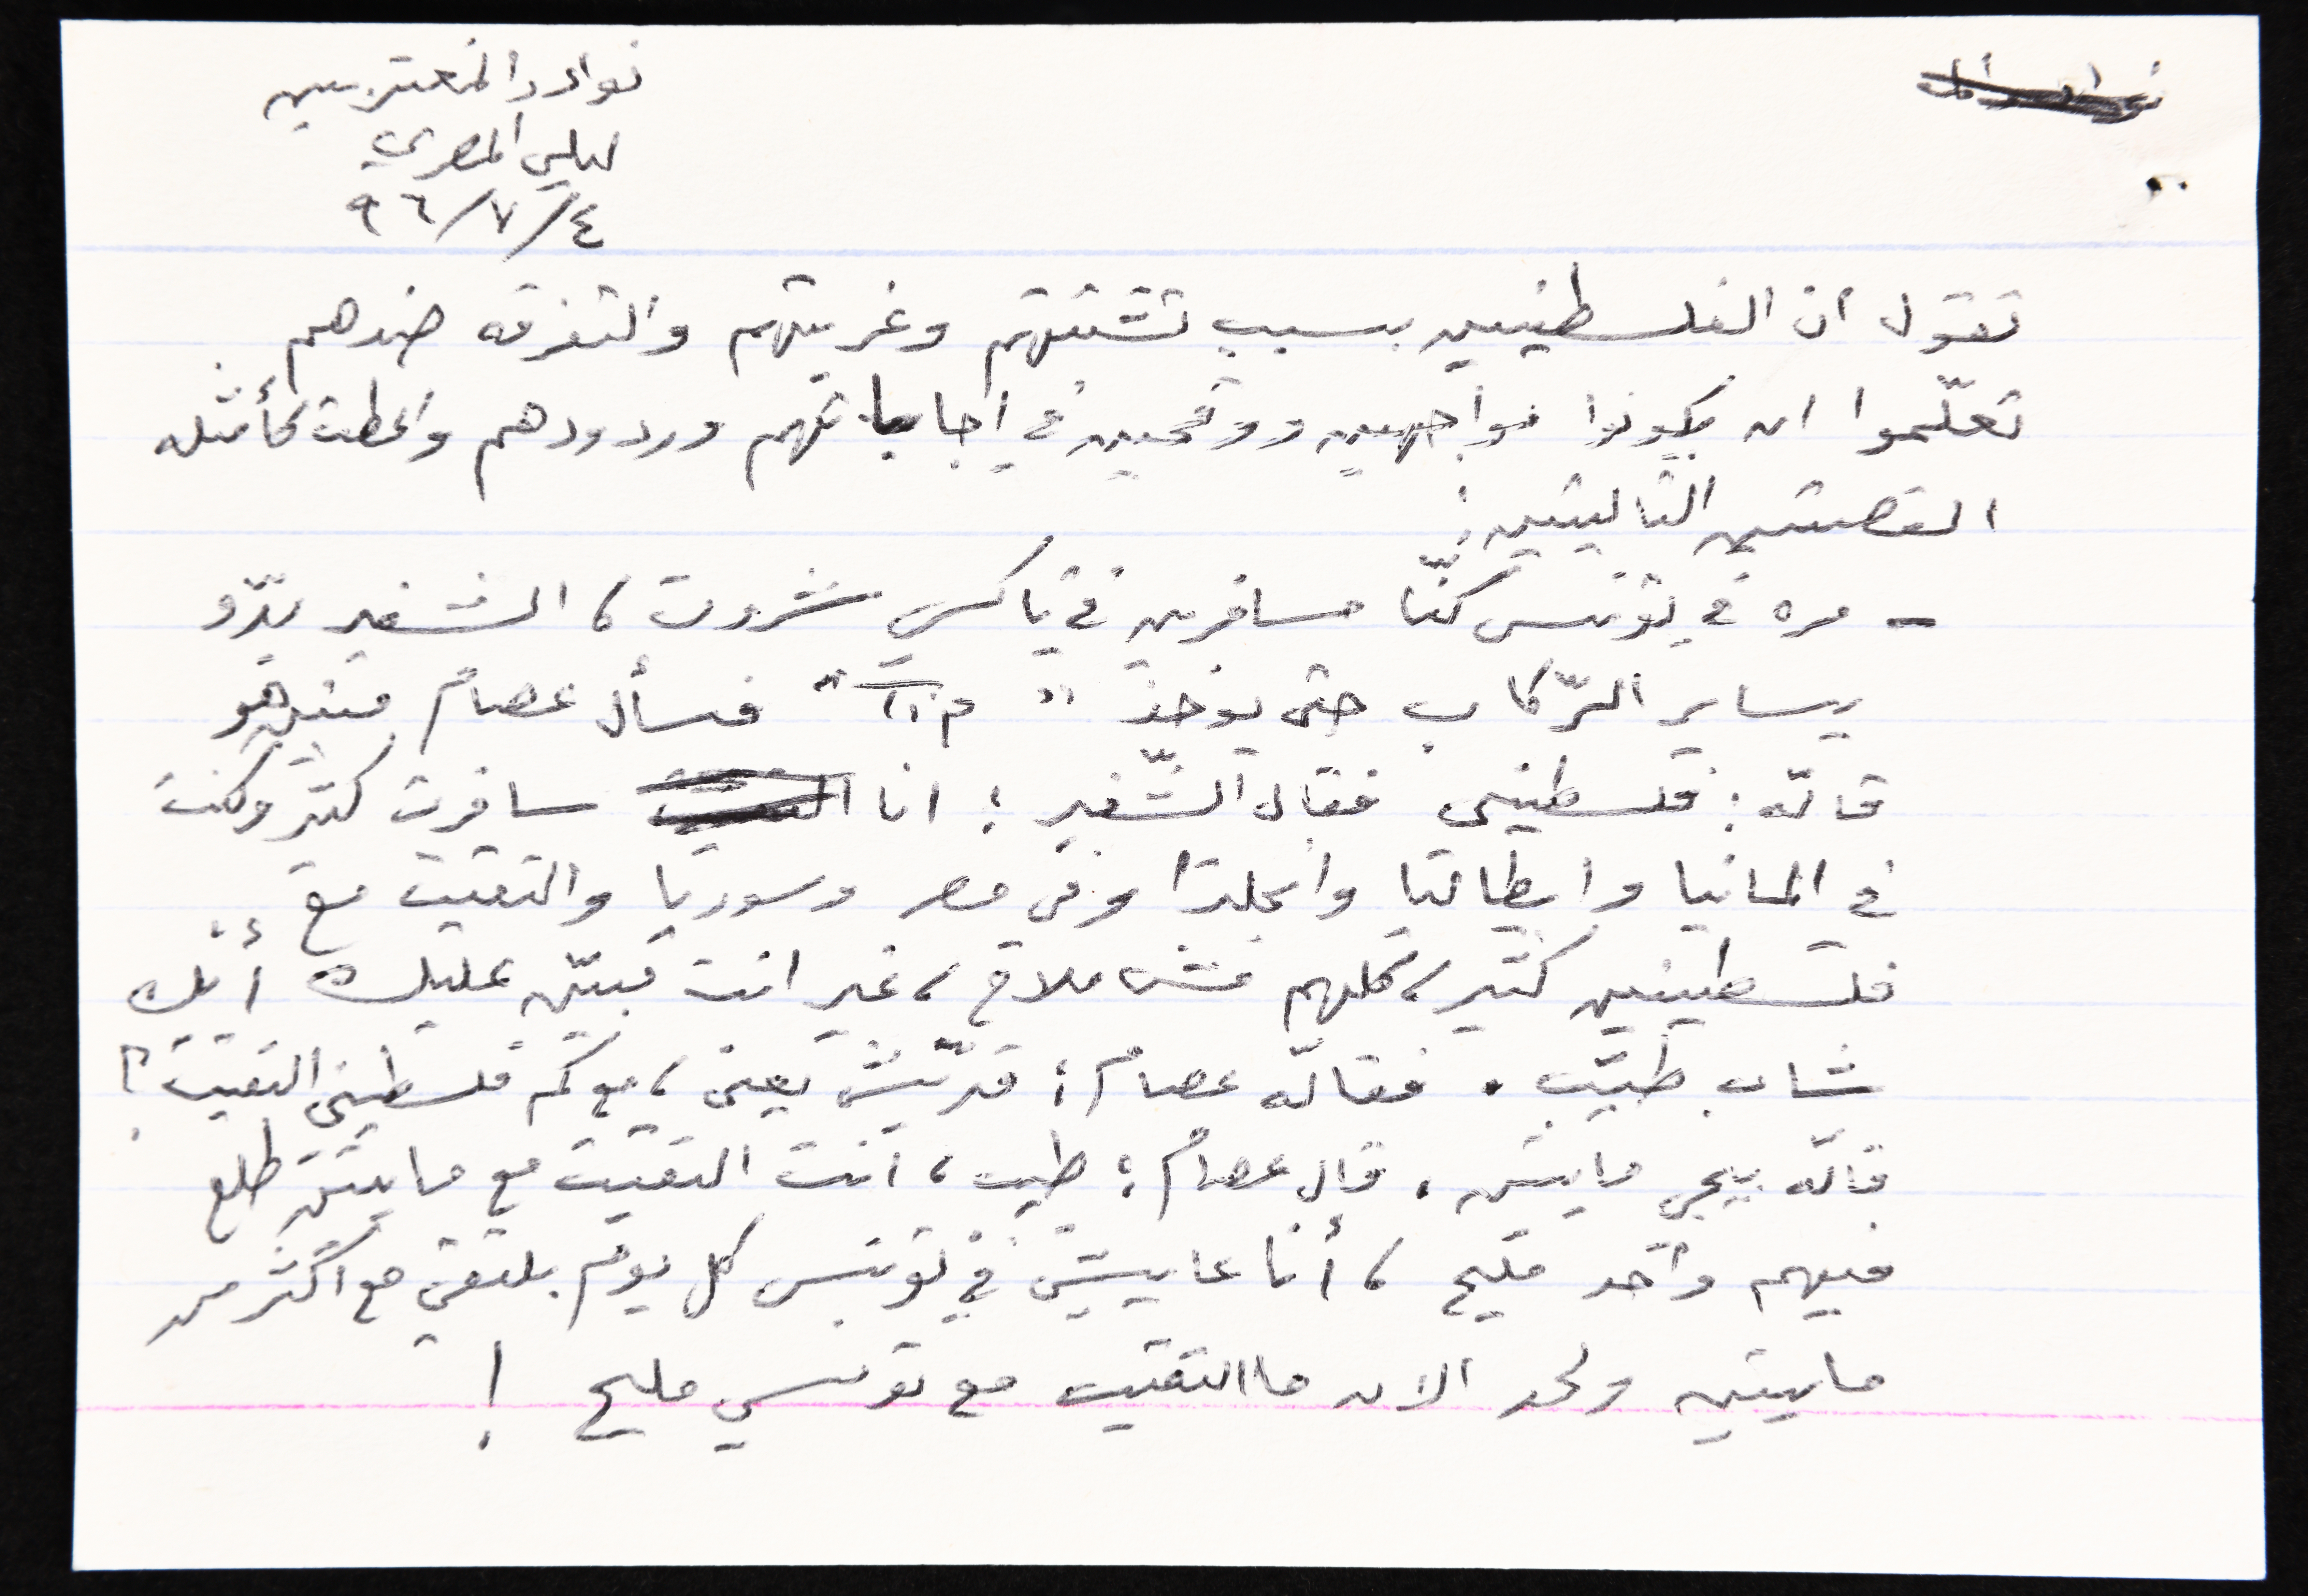 نوادر المغتربين
ليلى المصري
٩٦/٧/٤
تقول ان الفلسطينيين بسبب تشتتهم وغربتهم والتفرقه ضدهم
تعلّموا ان يكونوا مواجهين ووقحيين في اجاباتهم وردودهم واعطت كأمثله
القصتين التاليتين :
- مره في تونس كنّا مسافرين في تاكسي شروت ، الشفير بدّو
يساير الرّكاب حتى يوخذ " " فسأل عصام منين هو
قالّه : فلسطيني فقال الشّفير : انا سافرت كتير وكنت
في المانيا وايطاليا وانجلترا وفي مصر وسوريا والتقيت مع
فلسطينيين كتير ، كلهم مش ملاح ، غير انت مبيّن عليك أنك
شاب طيّب . فقالّه عصام : قدّيش يعني ، مع كم فلسطيني التقيت ؟
قالّه ييجي مايتين . قال عصام : طيب ، انت التقيت مع مايتين طلع
فيهم واحد مليح ، أنا عايش في تونس كل يوم بلتقي مع اكثر من
مايتين ولحد الان ما التقيت مع تونسي مليح !